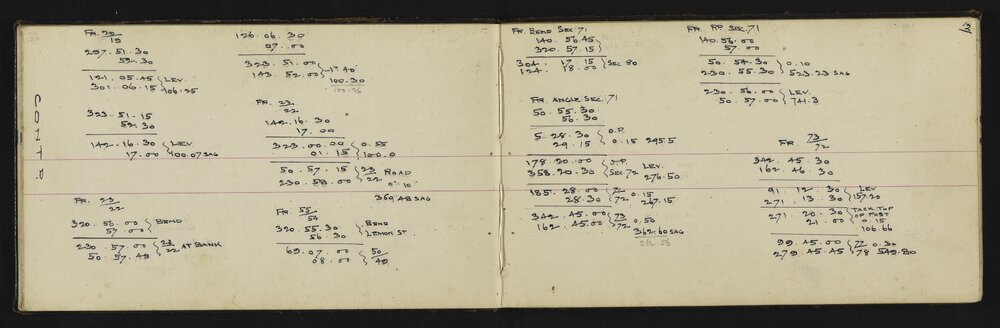 CONTD
FR. 20/15
297.51.30
52.30
121.05.45 } LEV.
301.06.15 } 106.25
323.51.15
52.30
142.16.30 } LEV
17.00 } 100.07 SAG
FR. 23/22
320.56.00 } BEND
57.00
230.57.00 } 23/22 AT BANK
50.57.45
126.06.30
07.00
323.51.00 } -1° 40'
143.52.00 } 100.30
FR. 23/22
142.16.30
17.00
323.00.00 } 0.55
01.15 } 100.0
50.57.15 } 23/22 ROAD
230.58.00 } 0°.10'
369.48 SAG
FR. 55/54
320.55.30 } BEND
56.30 } LEMON ST.
69.07.00 } 50/49
08.00
FR. BEND SEC 71
140.56.45 }
320.57.15 }
304.17.15 } SEC. 80
124.18.00
FR. ANGLE SEC. 71
50.55.30
56.30
5.28.30 } O.P.
29.15 } 0.15 295.5
178.20.00 } O.P. LEV.
358.20.30 } SEC 72 276.50
185.28.00 } 72 0.15
28.30 } 72 267.15
342.45.00 } 73/72 0.50
162.45.00
362.60 SAG
362.56
139
FR. RP. SEC. 71
140.56.00
57.00
50.54.30 } 0.10
230.55.30 } 523.23 SAG
230.56.00 } LEV.
50.57.00 } 741.3
FR. 73/72
342.45.30
162.46.30
91.12.30 } LEV
271.13.30 } 157.20
271.20.30 } TACK TOP OF POST
21.00 } 0.15
106.66
99.45.00 } 77/78 0.30
279.45.45 } 549.80